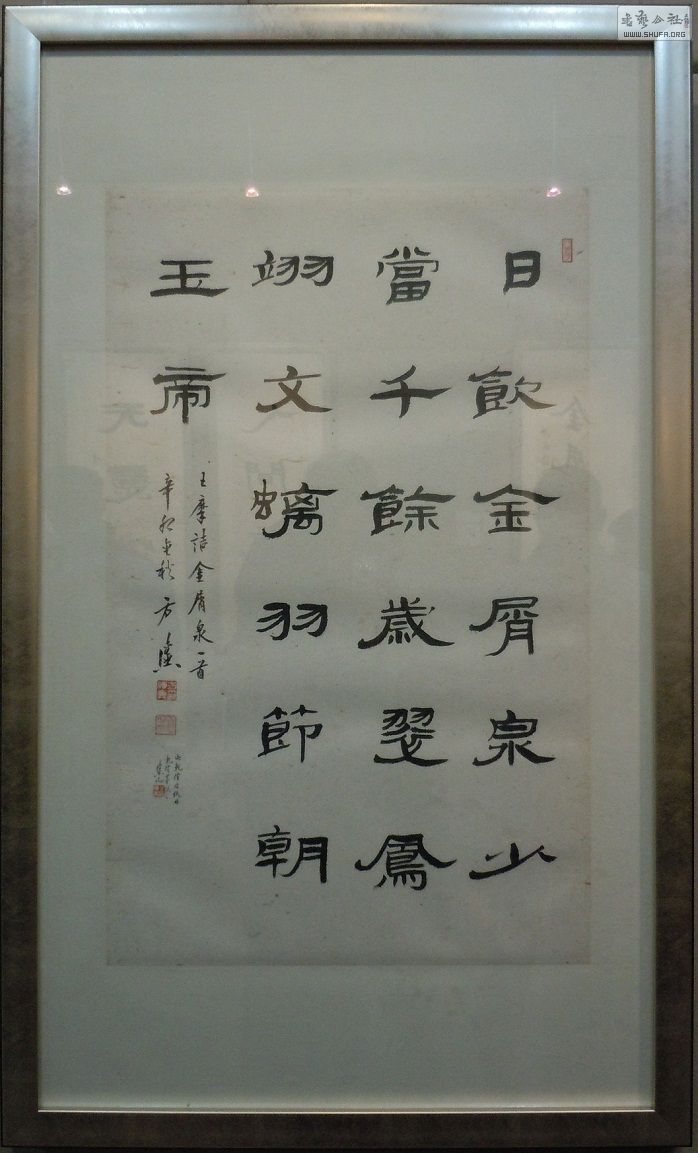 日飲金屑泉少
當千餘歲翠鳳
翊文螭羽節朝
玉帝
王摩詰金屑泉一首
辛卯秋方
書藝公社
WWW.SHUFA.ORG